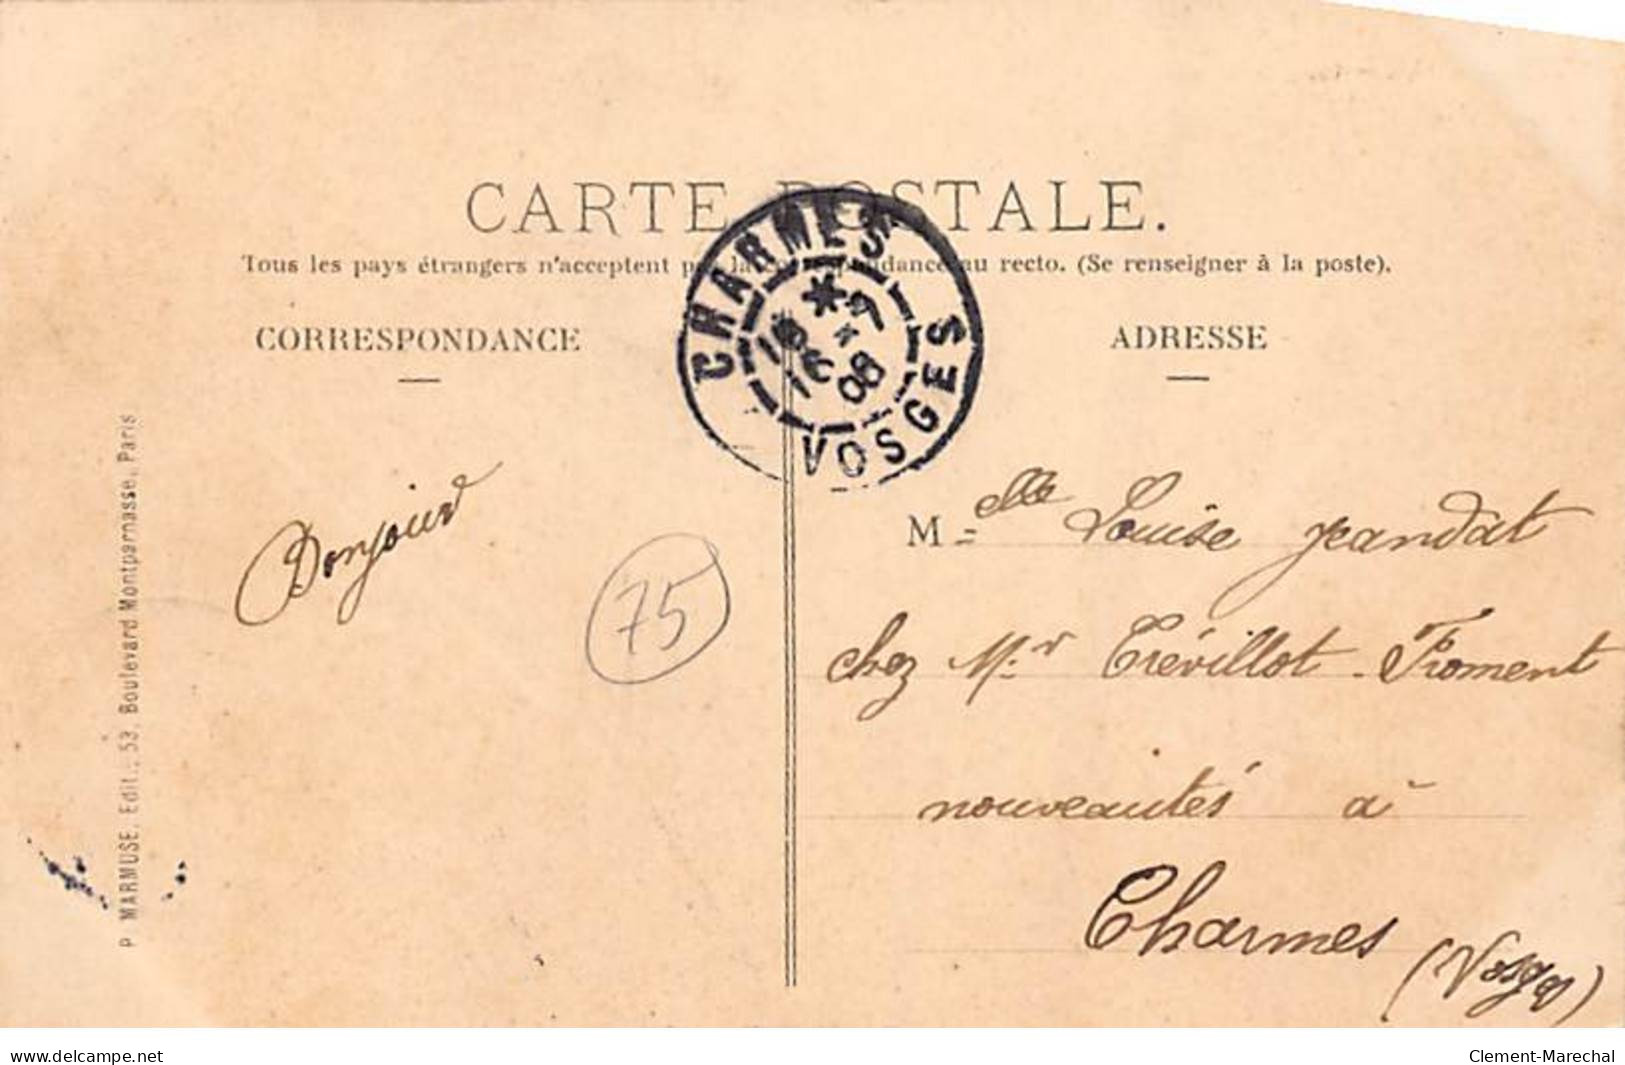 CARTE POSTALE.
Tous les pays étrangers n'acceptent pas la correspondance au recto. (Se renseigner à la poste).
CORRESPONDANCE
ADRESSE
CHARMES
VOSGES
Bonjour
75
M elle Louise Jeandat
chez Mr. Trévillot-Froment
nouveautés à
Charmes
(Vosges)
P. MARMUSE, Edit., 53, Boulevard Montparnasse, Paris
www.delcampe.net
Clement-Marechal